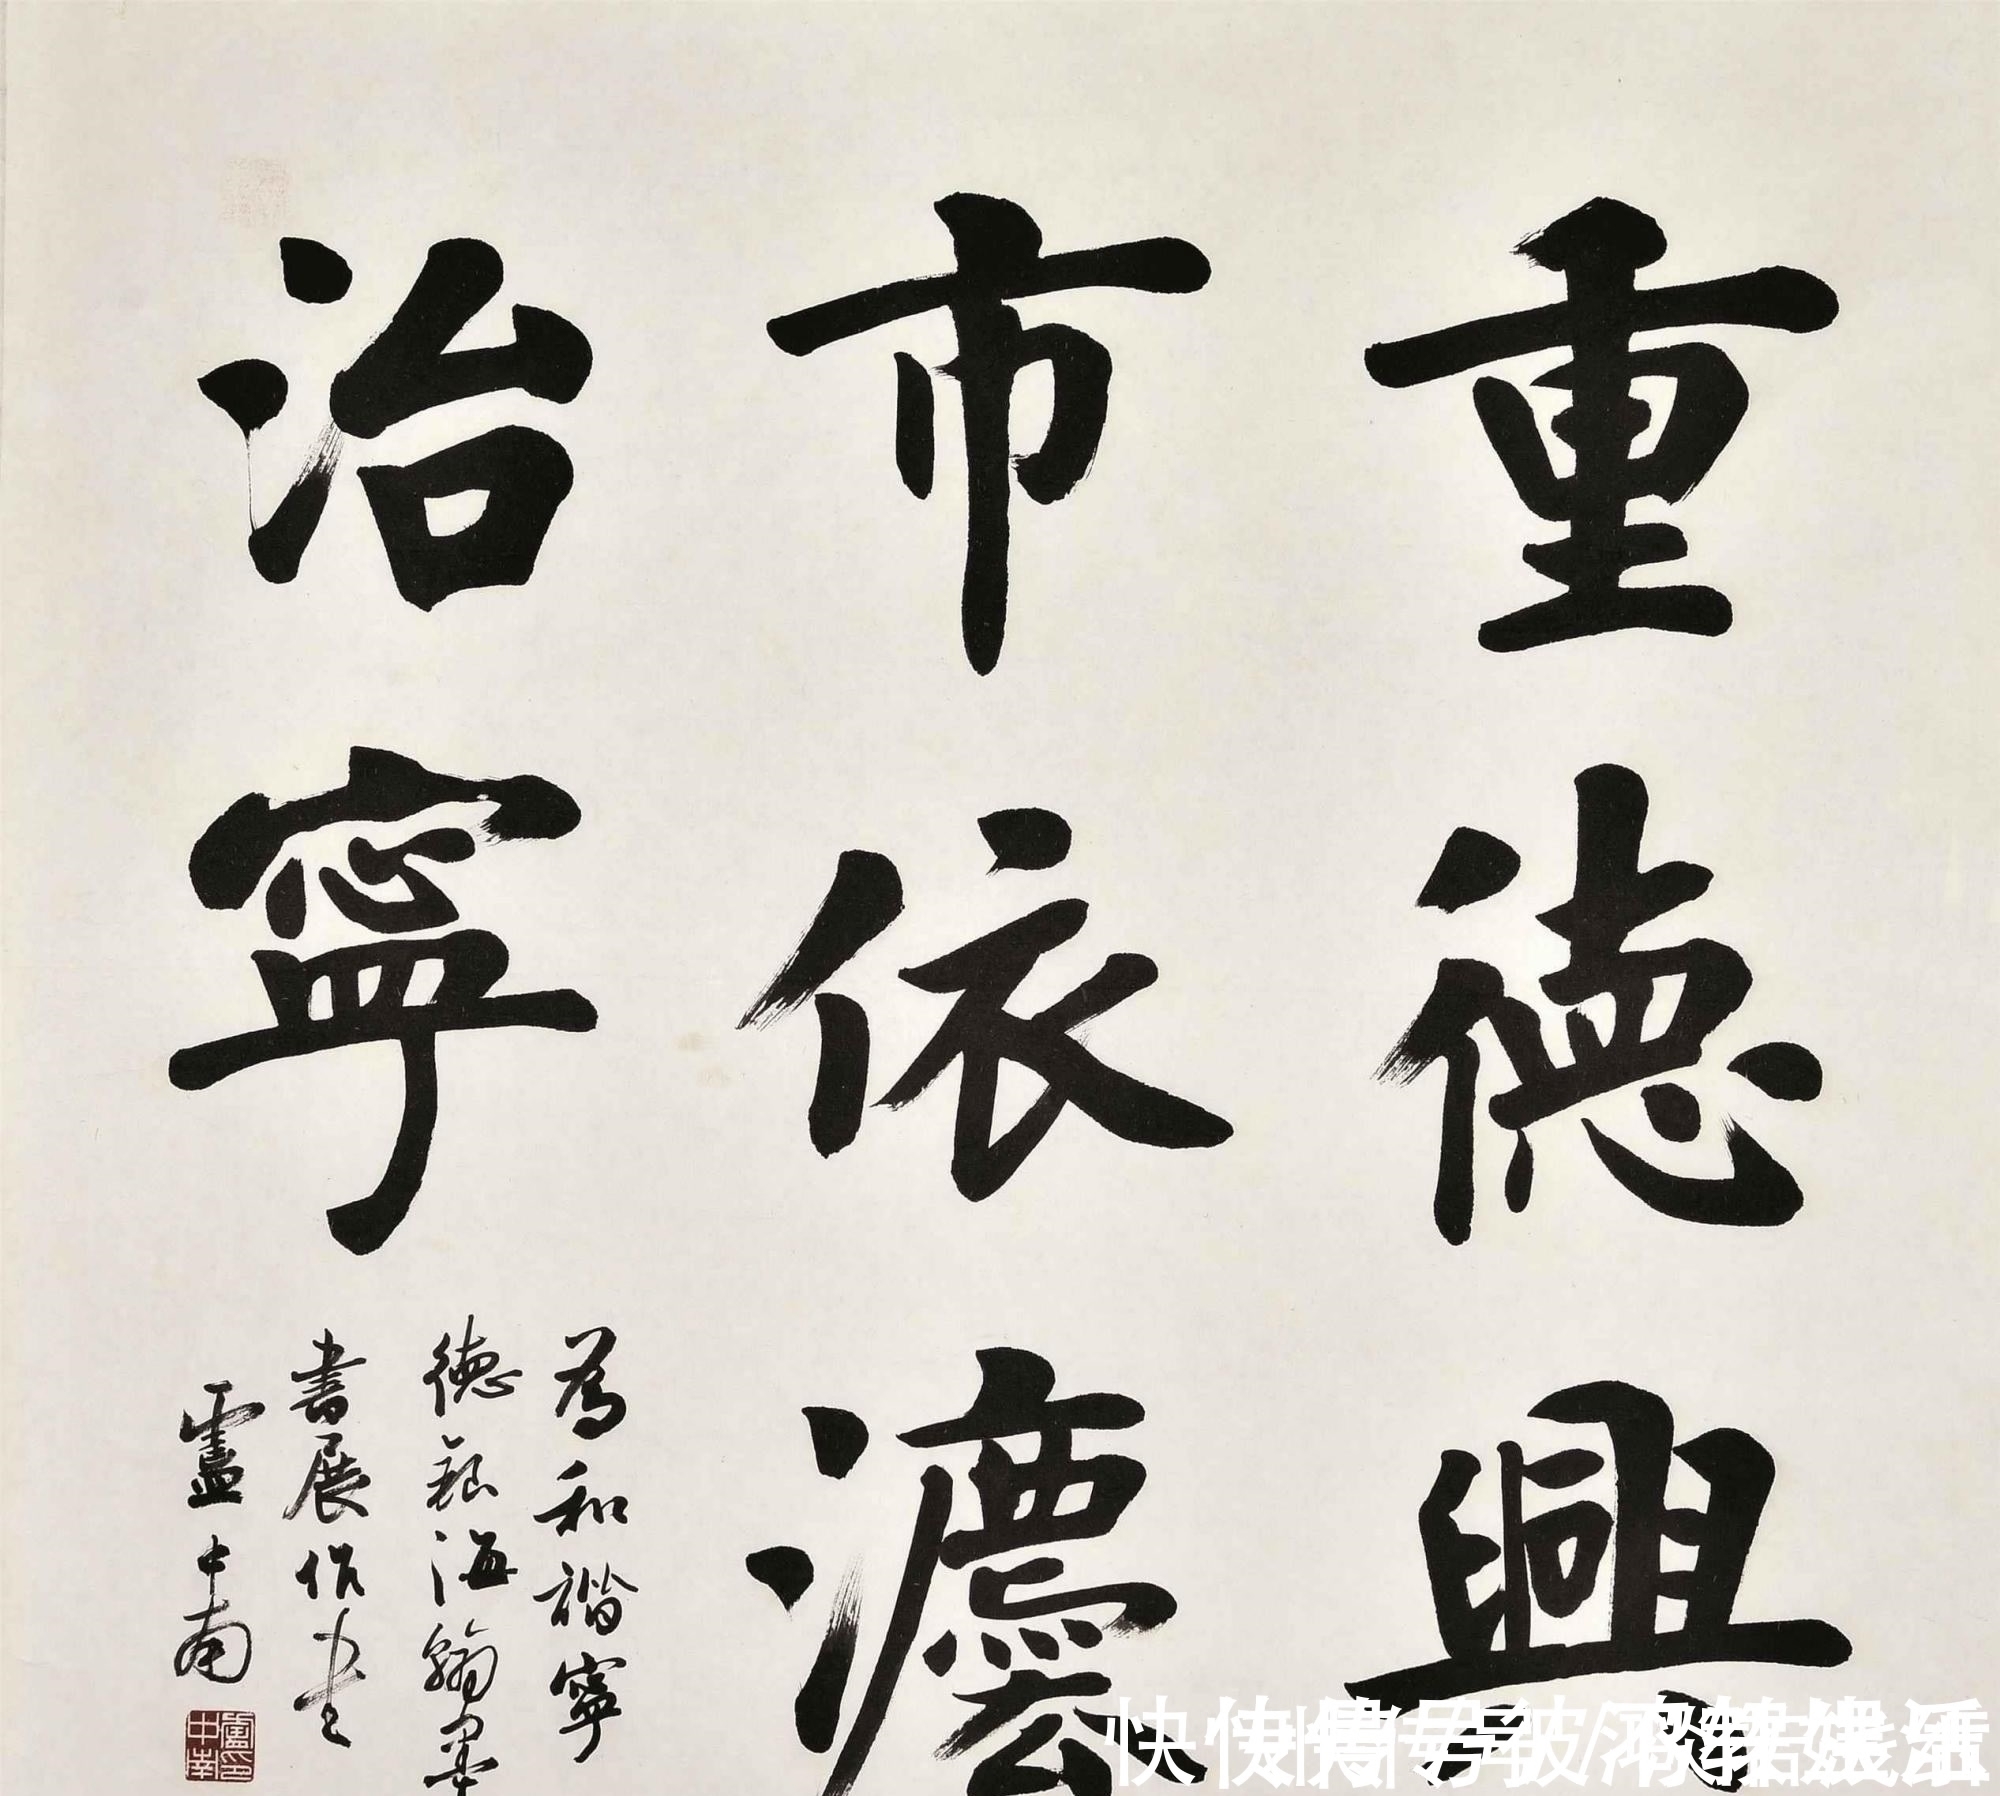 重德興
市依灋
治寧
為和諧寧
德翰海翰墨
書展作書
盧中南
盧中南印